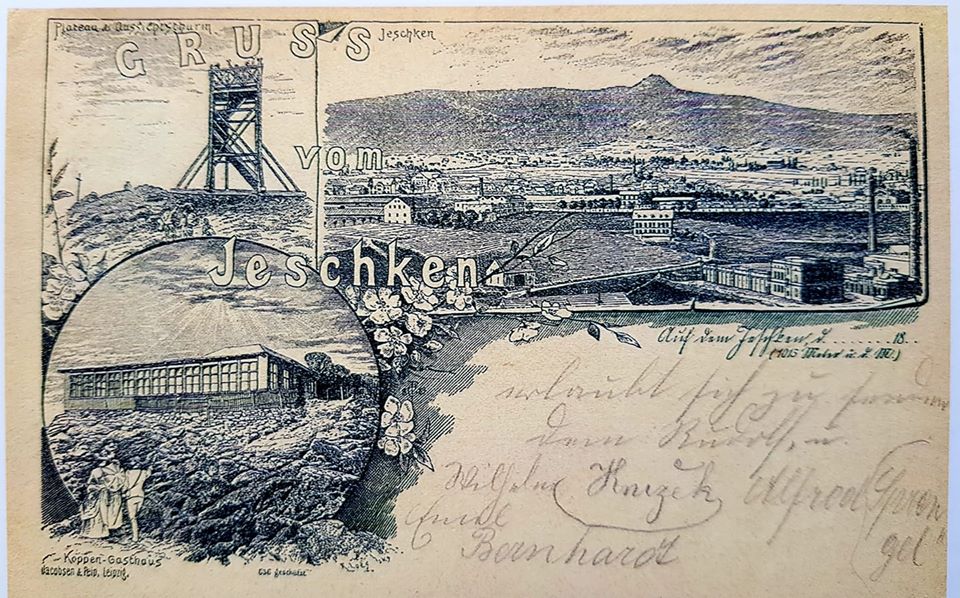 Plateau & Aussichtsthurm
GRUSS
Jeschken
vom
Jeschken
Auf dem Jeschken, d. ........ 18..
(1013 Meter ü. d. M.)
erlaubt sich zu senden
dem Rudolf u.
Wilhelm Knizek Alfred
Emil
Bernhardt
Koppen-Gasthaus
Jacobsen & Fein, Leipzig.
Ges. geschützt